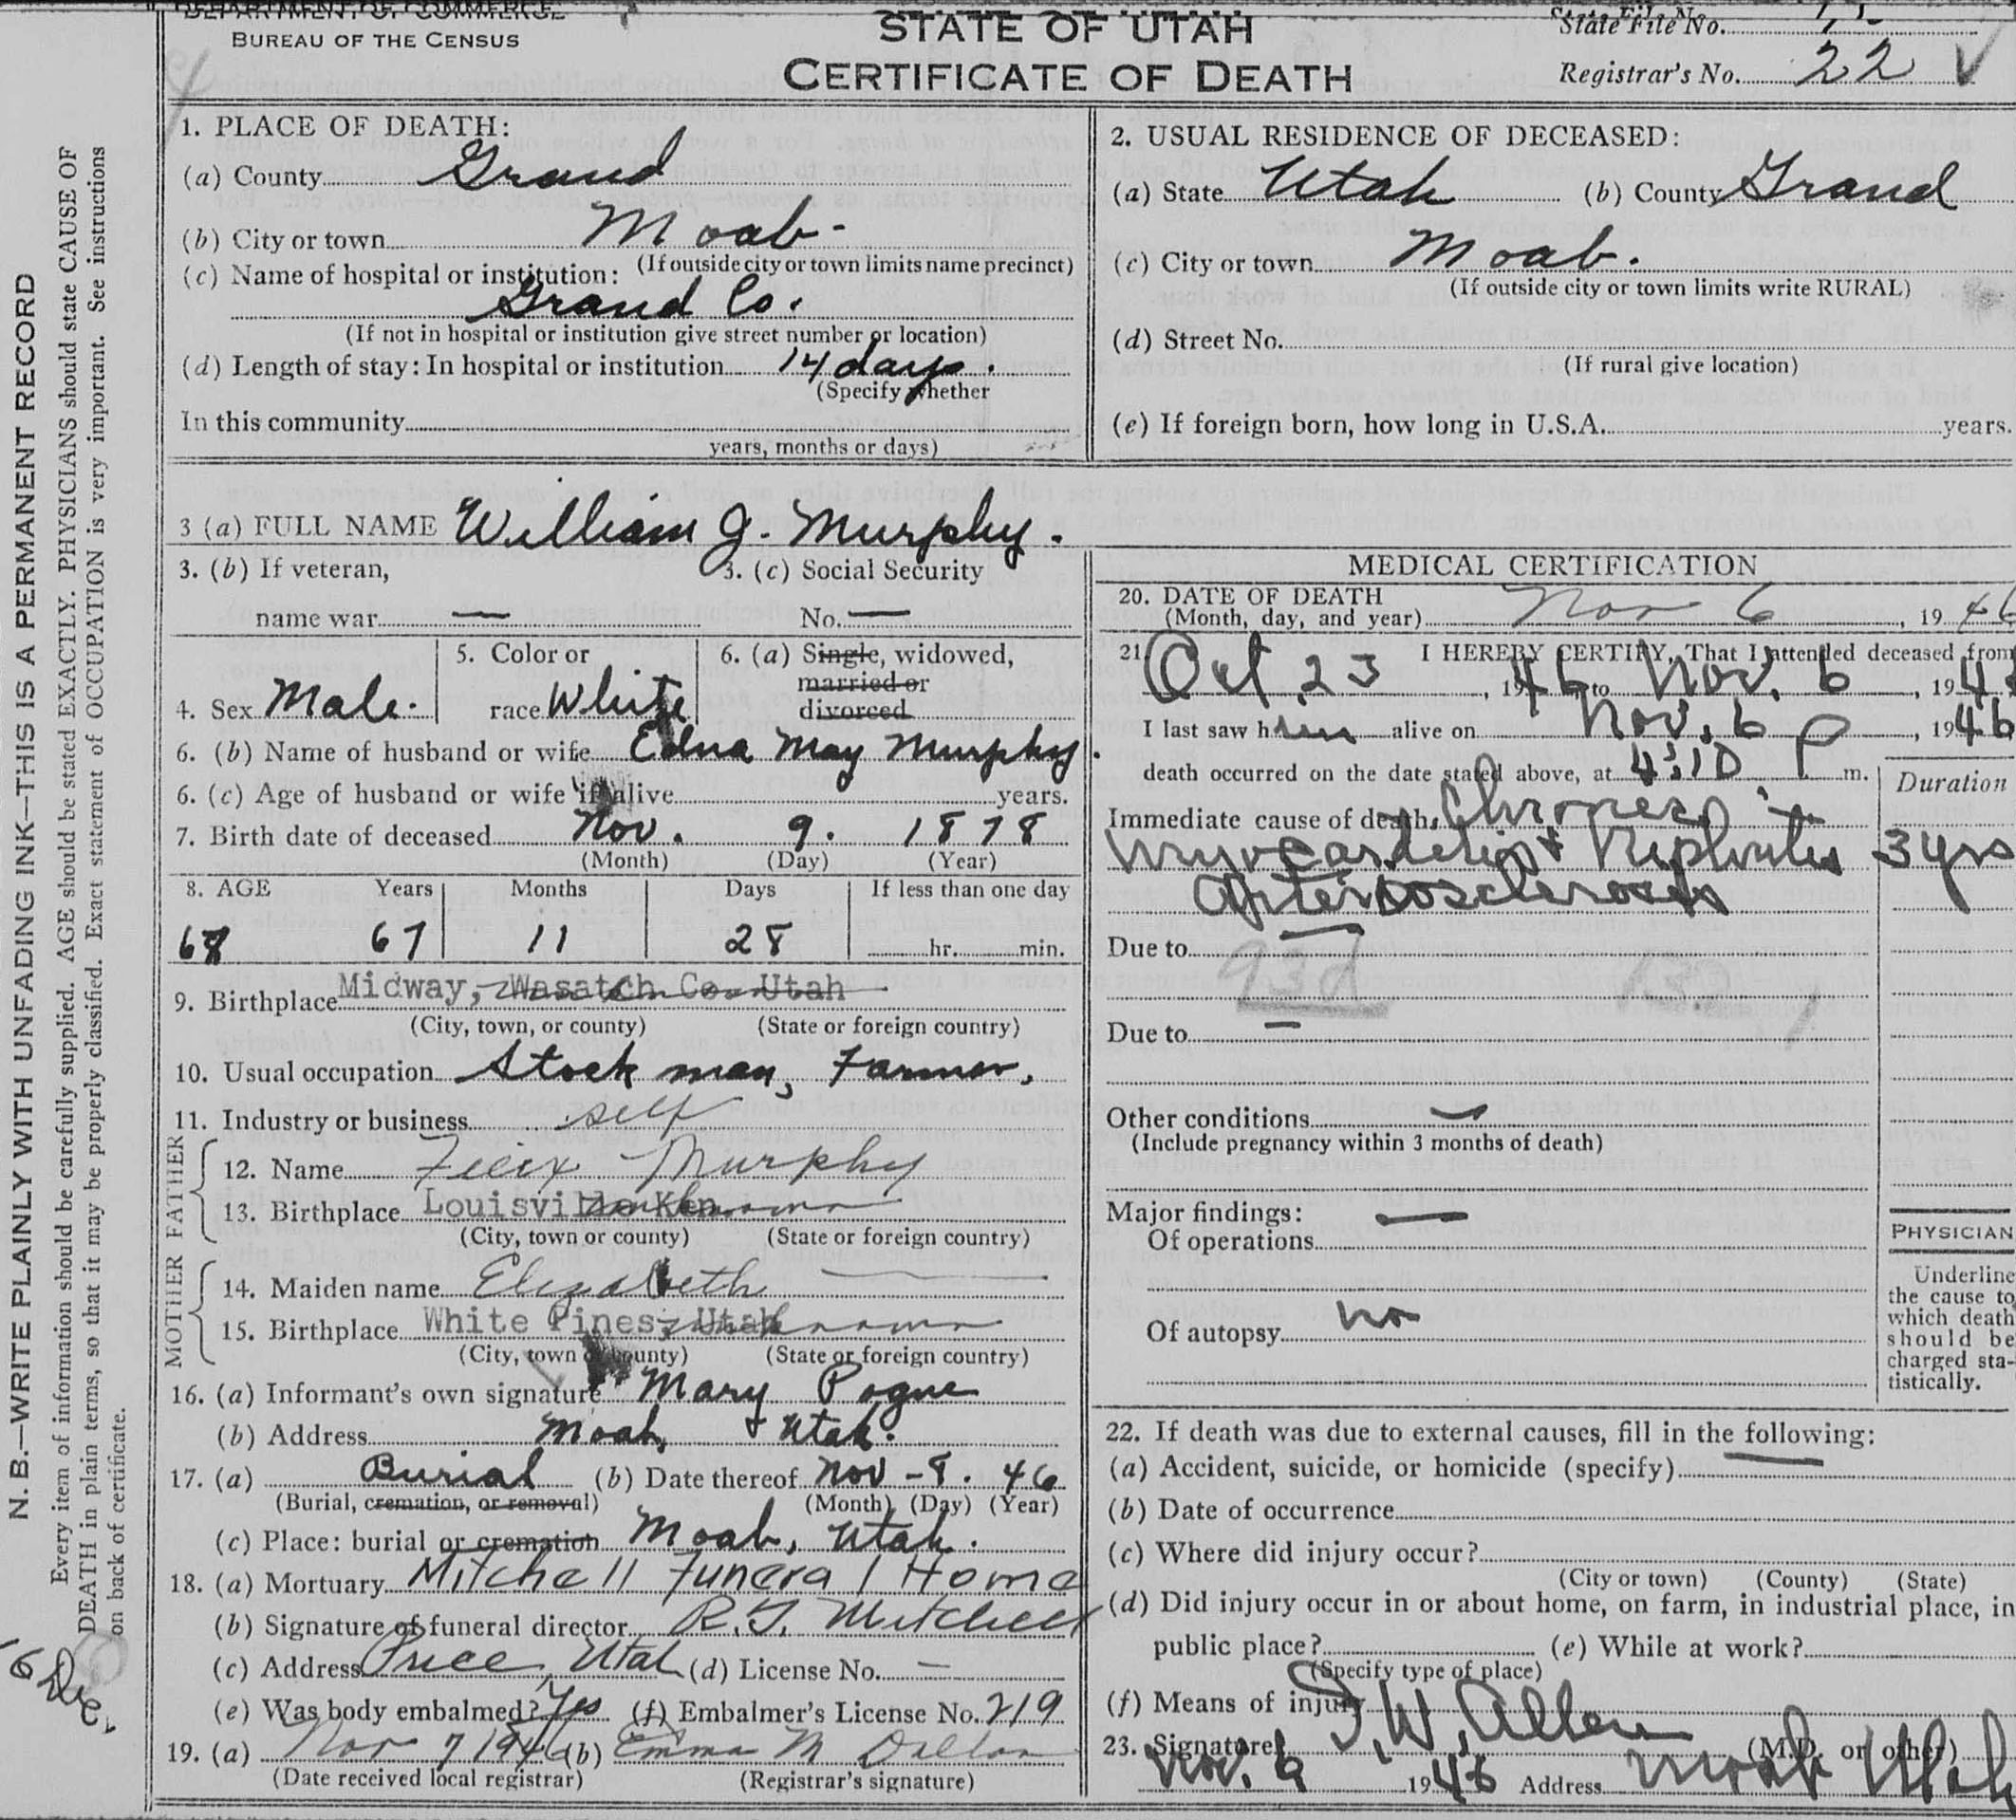 DEPARTMENT OF COMMERCE
BUREAU OF THE CENSUS
STATE OF UTAH
CERTIFICATE OF DEATH
State File No.
Registrar's No. 22
N. B.—WRITE PLAINLY WITH UNFADING INK—THIS IS A PERMANENT RECORD
Every item of information should be carefully supplied. AGE should be stated EXACTLY. PHYSICIANS should state CAUSE OF
DEATH in plain terms, so that it may be properly classified. Exact statement of OCCUPATION is very important. See instructions
on back of certificate.
1. PLACE OF DEATH:
(a) County Grand
(b) City or town Moab
(If outside city or town limits name precinct)
(c) Name of hospital or institution:
Grand Co.
(If not in hospital or institution give street number or location)
(d) Length of stay: In hospital or institution 14 days.
(Specify whether
In this community
years, months or days)
2. USUAL RESIDENCE OF DECEASED:
(a) State Utah (b) County Grand
(c) City or town Moab.
(If outside city or town limits write RURAL)
(d) Street No.
(If rural give location)
(e) If foreign born, how long in U.S.A. years.
3 (a) FULL NAME William G. Murphy.
3. (b) If veteran, 3. (c) Social Security
name war — No. —
4. Sex Male. 5. Color or race White 6. (a) Single, widowed, married or divorced
6. (b) Name of husband or wife Edna May Murphy.
6. (c) Age of husband or wife if alive years.
7. Birth date of deceased Nov. 9. 1878
(Month) (Day) (Year)
8. AGE Years Months Days If less than one day
68 67 11 28 hr. min.
9. Birthplace Midway, Wasatch Co. Utah
(City, town, or county) (State or foreign country)
10. Usual occupation Stock man, Farmer.
11. Industry or business self
FATHER
12. Name Felix Murphy
13. Birthplace Louisville Ken
(City, town or county) (State or foreign country)
MOTHER
14. Maiden name Elizabeth
15. Birthplace White Pines, Utah
(City, town or county) (State or foreign country)
16. (a) Informant's own signature Mary Pogue
(b) Address Moab, Utah.
17. (a) Burial (b) Date thereof Nov - 8. 46
(Burial, cremation, or removal) (Month) (Day) (Year)
(c) Place: burial or cremation Moab, Utah.
18. (a) Mortuary Mitchell Funeral Home
(b) Signature of funeral director R. J. Mitchell
(c) Address Price, Utah (d) License No. —
(e) Was body embalmed? Yes (f) Embalmer's License No. 219
19. (a) Nov 7 1946 (b) Emma M Dalton
(Date received local registrar) (Registrar's signature)
MEDICAL CERTIFICATION
20. DATE OF DEATH
(Month, day, and year) Nov 6, 1946
21. I HEREBY CERTIFY, That I attended deceased from
Oct 23, 1946 to Nov. 6, 194
I last saw him alive on Nov. 6, 1946
death occurred on the date stated above, at 4:10 P m.
Duration
Immediate cause of death Chronic
Myocarditis & Nephritis 3 yrs
Arteriosclerosis
Due to —
93d
Due to —
Other conditions —
(Include pregnancy within 3 months of death)
Major findings: —
Of operations
Of autopsy no
PHYSICIAN
Underline
the cause to
which death
should be
charged sta-
tistically.
22. If death was due to external causes, fill in the following:
(a) Accident, suicide, or homicide (specify) —
(b) Date of occurrence
(c) Where did injury occur?
(City or town) (County) (State)
(d) Did injury occur in or about home, on farm, in industrial place, in
public place? (e) While at work?
(Specify type of place)
(f) Means of injury
23. Signature I. W. Allen (M.D. or other)
Nov. 6 1946 Address Moab Utah